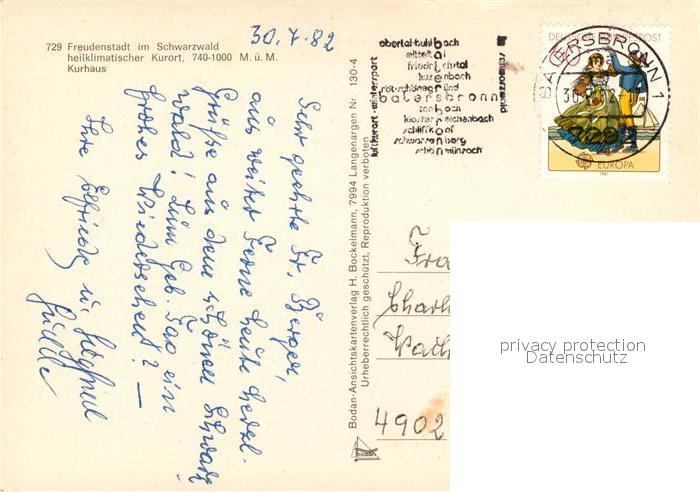 30.7.82
729 Freudenstadt im Schwarzwald
heilklimatischer Kurort, 740-1000 M. ü. M.
Kurhaus
Sehr geehrte Fr. Berger,
aus weiter Ferne heute herzl.
Grüße aus dem schönen Schwarz
wald! Zum Geb. Tag ein
frohes Wiedersehen? —
Ihre Elfriede u. Siegfried
Bodan-Ansichtskartenverlag H. Bockelmann, 7994 Langenargen Nr. 130-4
Urheberrechtlich geschützt, Reproduktion verboten
bodan
luftkurort - wintersport
obertal-buhlbach
mitteltal
friedrichstal
huzenbach
röt-schönegründ
baiersbronn
tonbach
klosterreichenbach
schliffkopf
schwarzenberg
schönmünzach
im
schwarzwald
DEUTSCHE BUNDESPOST
BAIERSBRONN 1
7292
EUROPA
1981
Fra
Charl
4902
privacy protection
Datenschutz